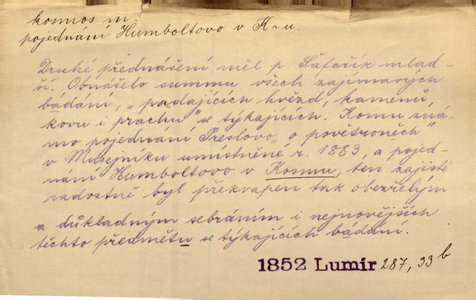 kosmos m.
pojednání Humboltovo v K-u
Druhé přednášení měl p. Šafařík mlad-
ší. Obnášelo summu všech zajímavých
bádání, „padajících hvězd, kamenů,
kovu i prachu se týkajících. Komu zná-
mo pojednání Preslovo „o povětroních"
v Musejníku umístněné r. 1883, a pojed-
nání Humboltovo v Kosmu, ten zajisté
radostně byl překvapen tak obezřelým
a důkladným sebráním i nejnovějších
těchto předmětu se týkajících bádání.
1852 Lumír 287, 33 b